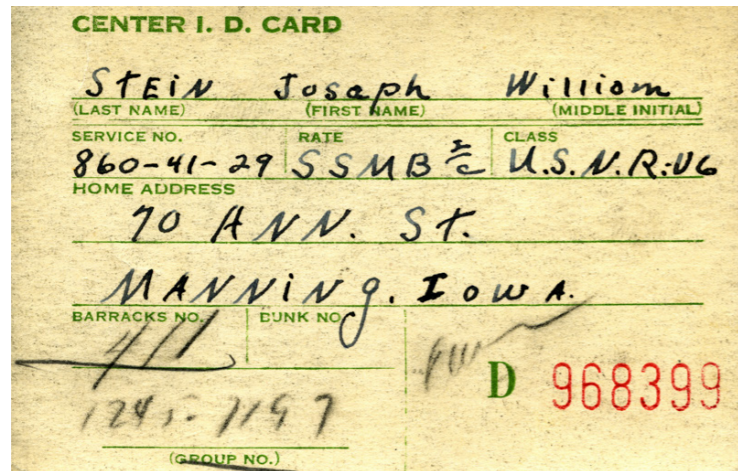 CENTER I. D. CARD
STEiN Joseph William
(LAST NAME) (FIRST NAME) (MIDDLE INITIAL)
SERVICE NO. RATE CLASS
860-41-29 SSMB 2/c U.S.N.R.-V6
HOME ADDRESS
70 ANN. St.
MANNiNg. Iowa.
BARRACKS NO. BUNK NO.
411
D 968399
1245-1197
(GROUP NO.)